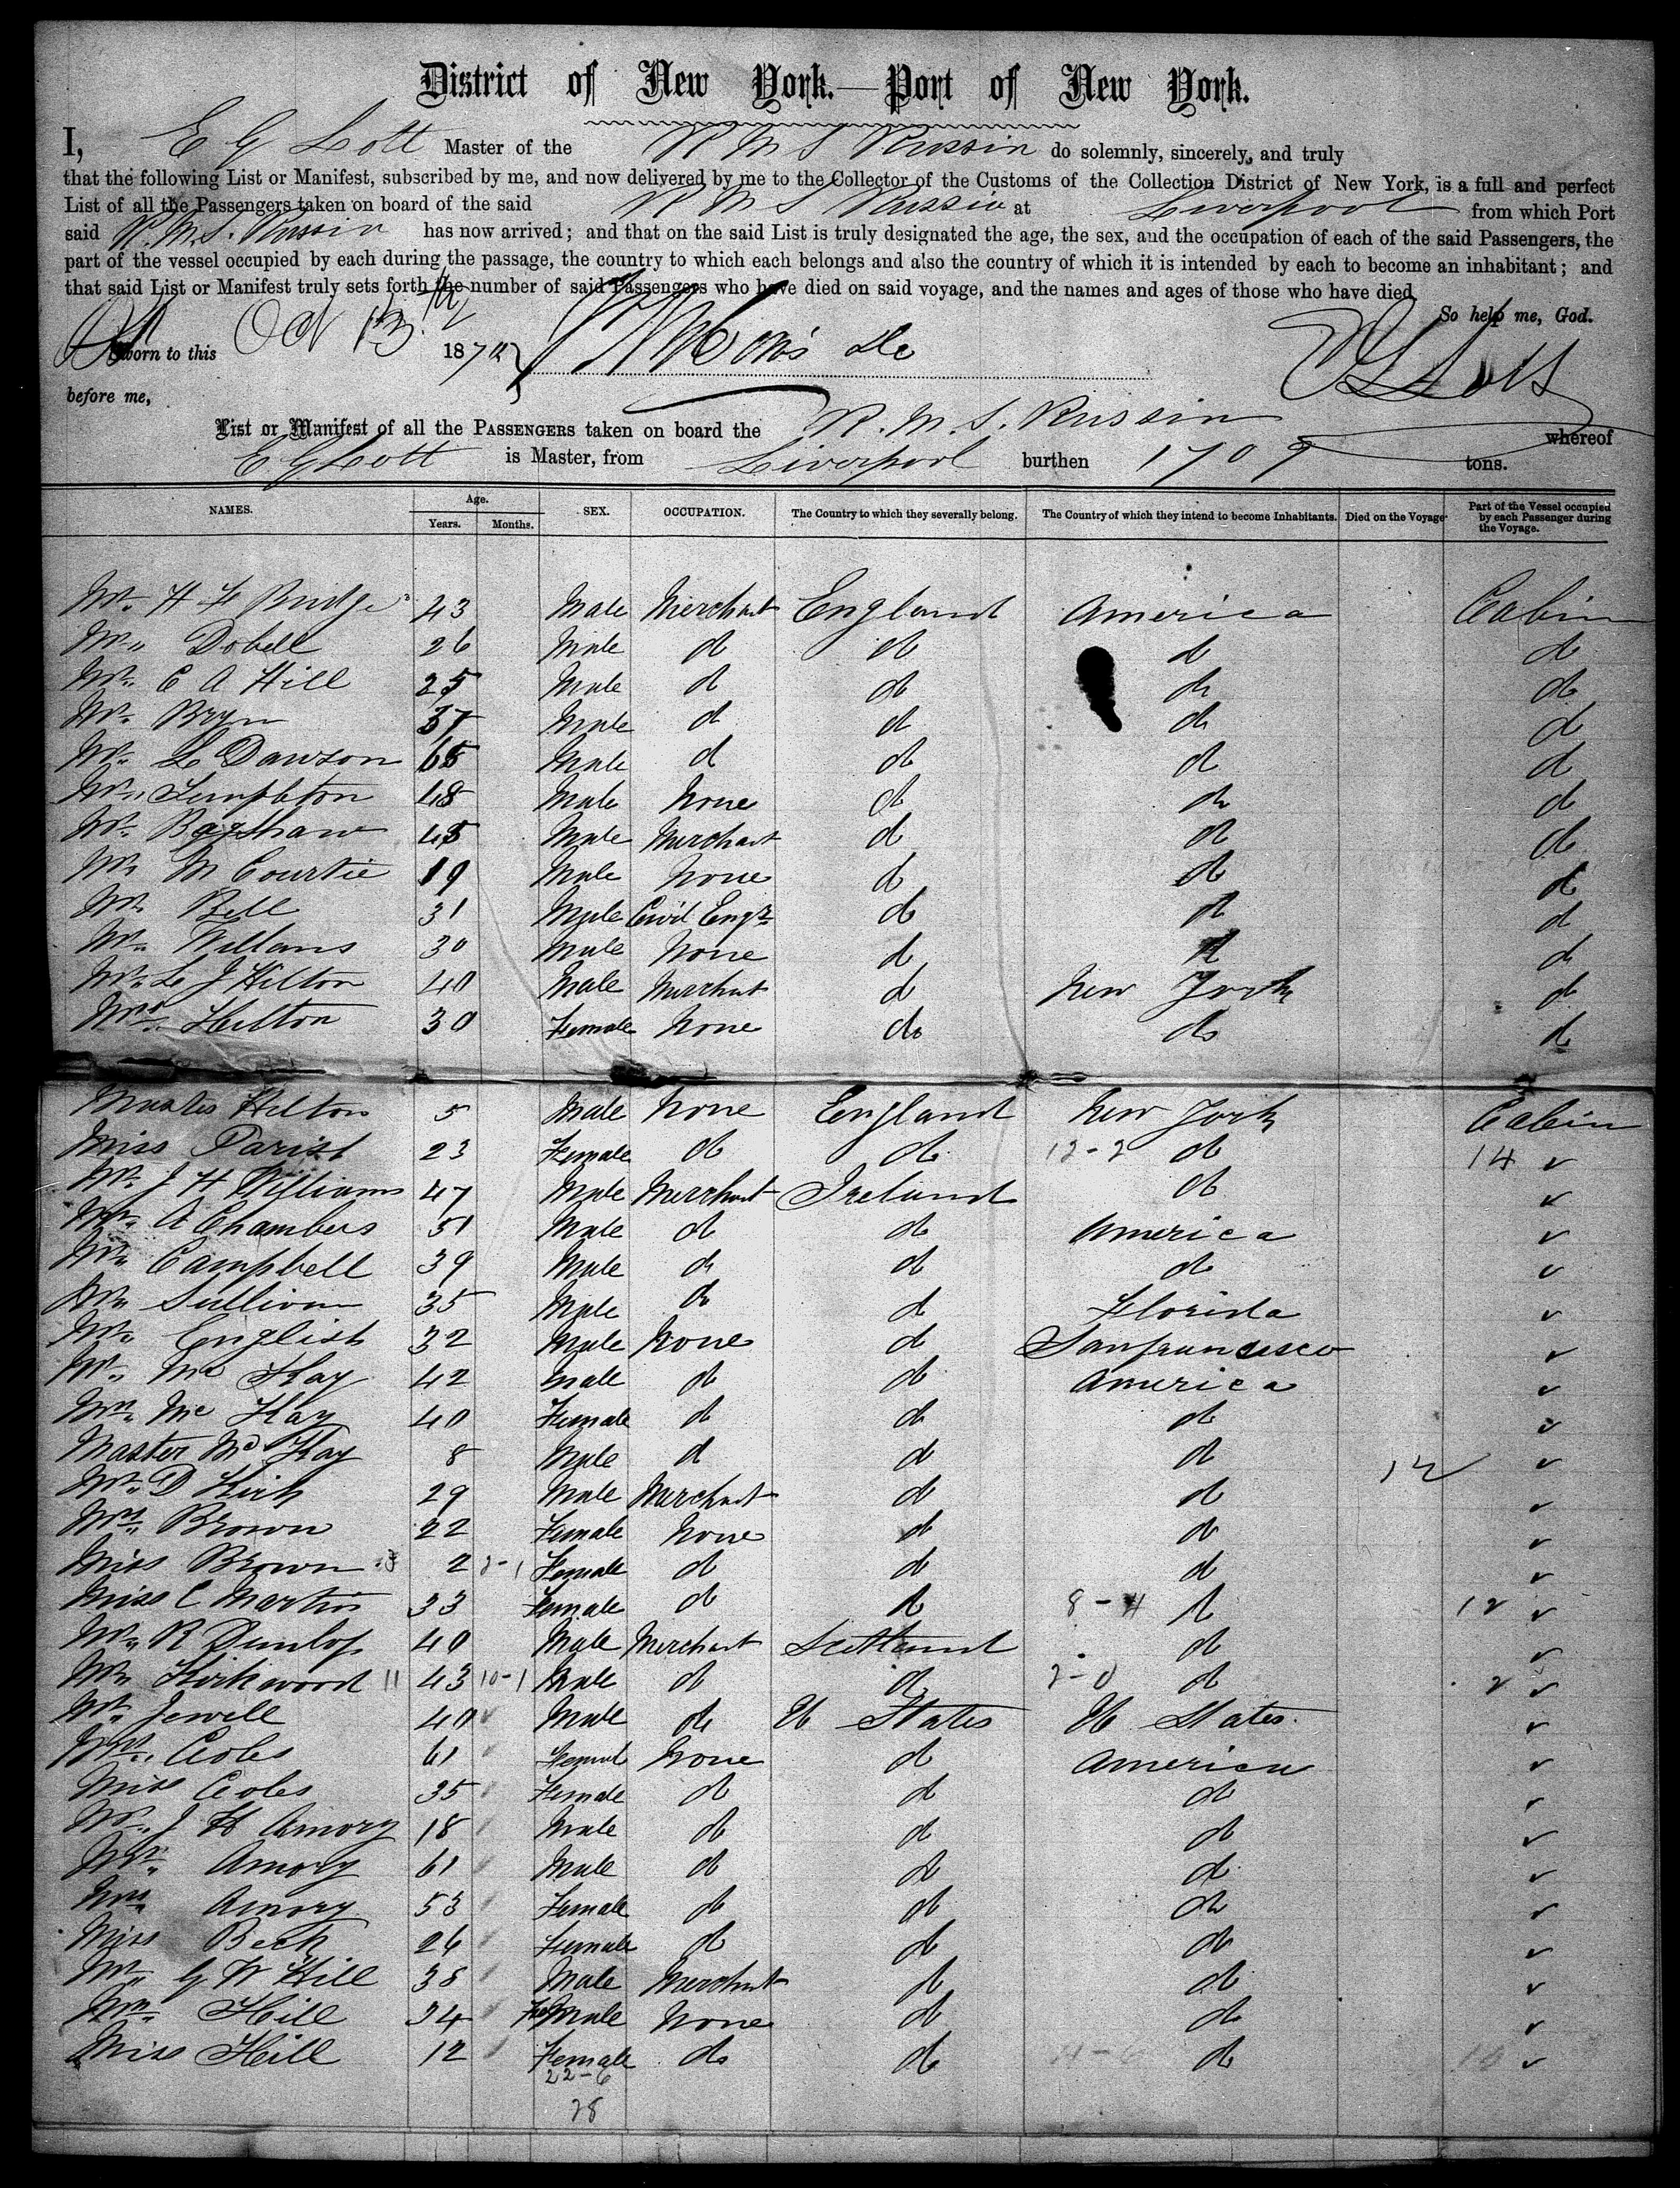 District of New York.—Port of New York.
I, E G Lott Master of the R M S Russia do solemnly, sincerely, and truly
that the following List or Manifest, subscribed by me, and now delivered by me to the Collector of the Customs of the Collection District of New York, is a full and perfect
List of all the Passengers taken on board of the said R M S Russia at Liverpool from which Port
said R. M. S. Russia has now arrived; and that on the said List is truly designated the age, the sex, and the occupation of each of the said Passengers, the
part of the vessel occupied by each during the passage, the country to which each belongs and also the country of which it is intended by each to become an inhabitant; and
that said List or Manifest truly sets forth the number of said Passengers who have died on said voyage, and the names and ages of those who have died.
So help me, God.
Sworn to this Oct 13th 187 E G Lott
before me,
List or Manifest of all the PASSENGERS taken on board the R. M. S. Russia whereof
E G Lott is Master, from Liverpool burthen 1709 tons.
NAMES. Age. Years. Months. SEX. OCCUPATION. The Country to which they severally belong. The Country of which they intend to become Inhabitants. Died on the Voyage Part of the Vessel occupied by each Passenger during the Voyage.
Mr. H F Bridge 43 Male Merchant England America Cabin
Mr. Dobell 26 Male do do do do
Mr. C A Hill 25 Male do do do do
Mr. Bryn 37 Male do do do do
Mr. L Dawson 65 Male do do do do
Mr. Templeton 48 Male None do do do
Mr. Bagshaw 45 Male Merchant do do do
Mr. M Courtie 19 Male None do do do
Mr. Bell 31 Male Civil Engr do do do
Mr. Willans 30 Male None do do do
Mr. L J Hilton 40 Male Merchant do New York do
Mrs. Hilton 30 Female None do do do
Master Hilton 5 Male None England New York Cabin
Miss Parish 23 Female do do 12-2 do 14 ✓
Mr. J H Williams 47 Male Merchant Ireland do ✓
Mr. A Chambers 51 Male do do America ✓
Mr. Campbell 39 Male do do do ✓
Mr. Sullivan 35 Male do do Florida ✓
Mr. English 32 Male None do Sanfrancisco ✓
Mr. Mc Kay 42 Male do do America ✓
Mrs. Mc Kay 40 Female do do do ✓
Master Mc Kay 8 Male do do do 12 ✓
Mr. D Kirk 29 Male Merchant do do ✓
Mrs. Brown 22 Female None do do ✓
Miss Brown 3 2 2-1 Female do do do ✓
Miss C Martin 33 Female do do 8-4 do 12 ✓
Mr. R Dunlop 40 Male Merchant Scotland do ✓
Mr. Kirkwood 11 43 10-1 Male do do 2-0 do 2 ✓
Mr. Jewell 40 Male do U States U States ✓
Mrs. Coles 61 Femal None do America ✓
Miss Coles 35 Female do do do ✓
Mr. J H Amory 18 Male do do do ✓
Mr. Amory 61 Male do do do ✓
Mrs. Amory 53 Female do do do ✓
Miss Beck 26 Female do do do ✓
Mr. G W Hill 38 Male Merchant do do ✓
Mrs. Hill 34 FeMale None do do ✓
Miss Hill 12 Female do do 11-6 do 16 ✓
22-6
28